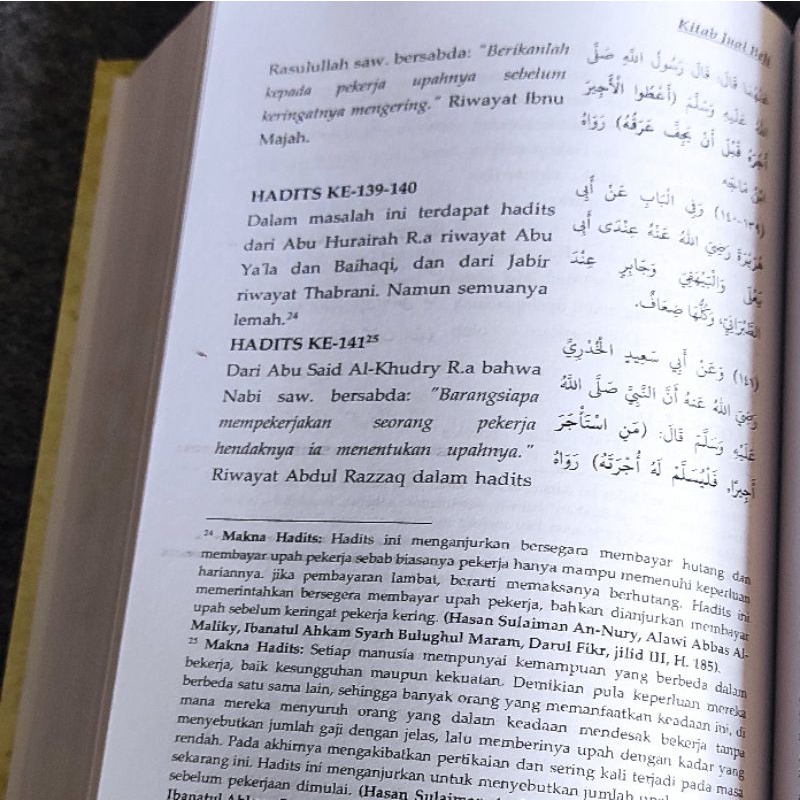 Kitab Jual Beli
Rasulullah saw. bersabda: "Berikanlah
kepada pekerja upahnya sebelum
keringatnya mengering." Riwayat Ibnu
Majah.
عَنْهُمَا قَالَ: قَالَ رَسُولُ اللَّهِ صَلَّى
اللهُ عَلَيْهِ وَسَلَّمَ (أَعْطُوا الْأَجِيرَ
أَجْرَهُ قَبْلَ أَنْ يَجِفَّ عَرَقُهُ) رَوَاهُ
ابْنُ مَاجَه
HADITS KE-139-140
Dalam masalah ini terdapat hadits
dari Abu Hurairah R.a riwayat Abu
Ya'la dan Baihaqi, dan dari Jabir
riwayat Thabrani. Namun semuanya
lemah.²⁴
(١٣٩-١٤٠) وَفِي الْبَابِ عَنْ أَبِي
هُرَيْرَةَ رَضِيَ اللهُ عَنْهُ عِنْدَى أَبِي
يَعْلَى وَالْبَيْهَقِيِّ وَجَابِرٍ عِنْدَ
الطَّبْرَانِيّ، وَكُلُّهَا ضِعَافٌ.
HADITS KE-141²⁵
Dari Abu Said Al-Khudry R.a bahwa
Nabi saw. bersabda: "Barangsiapa
mempekerjakan seorang pekerja
hendaknya ia menentukan upahnya."
Riwayat Abdul Razzaq dalam hadits
(١٤١) وَعَنْ أَبِي سَعِيدٍ الْخُدْرِيِّ
رَضِيَ اللهُ عَنْهُ أَنَّ النَّبِيَّ صَلَّى اللَّهُ
عَلَيْهِ وَسَلَّمَ قَالَ: (مَنِ اسْتَأْجَرَ
أَجِيرًا، فَلْيُسَلِّمْ لَهُ أُجْرَتَهُ) رَوَاهُ
²⁴ Makna Hadits: Hadits ini menganjurkan bersegara membayar hutang dan
membayar upah pekerja sebab biasanya pekerja hanya mampu memenuhi keperluan
hariannya. jika pembayaran lambat, berarti memaksanya berhutang. Hadits ini
memerintahkan bersegera membayar upah pekerja, bahkan dianjurkan membayar
upah sebelum keringat pekerja kering. (Hasan Sulaiman An-Nury, Alawi Abbas Al-
Maliky, Ibanatul Ahkam Syarh Bulughul Maram, Darul Fikr, jilid III, H. 185).
²⁵ Makna Hadits: Setiap manusia mempunyai kemampuan yang berbeda dalam
bekerja, baik kesungguhan maupun kekuatan. Demikian pula keperluan mereka
berbeda satu sama lain, sehingga banyak orang yang memanfaatkan keadaan ini, di
mana mereka menyuruh orang yang dalam keadaan mendesak bekerja tanpa
menyebutkan jumlah gaji dengan jelas, lalu memberinya upah dengan kadar yang
rendah. Pada akhirnya mengakibatkan pertikaian dan sering kali terjadi pada masa
sekarang ini. Hadits ini menganjurkan untuk menyebutkan jumlah
sebelum pekerjaan dimulai. (Hasan Sulaiman
Ibanatul